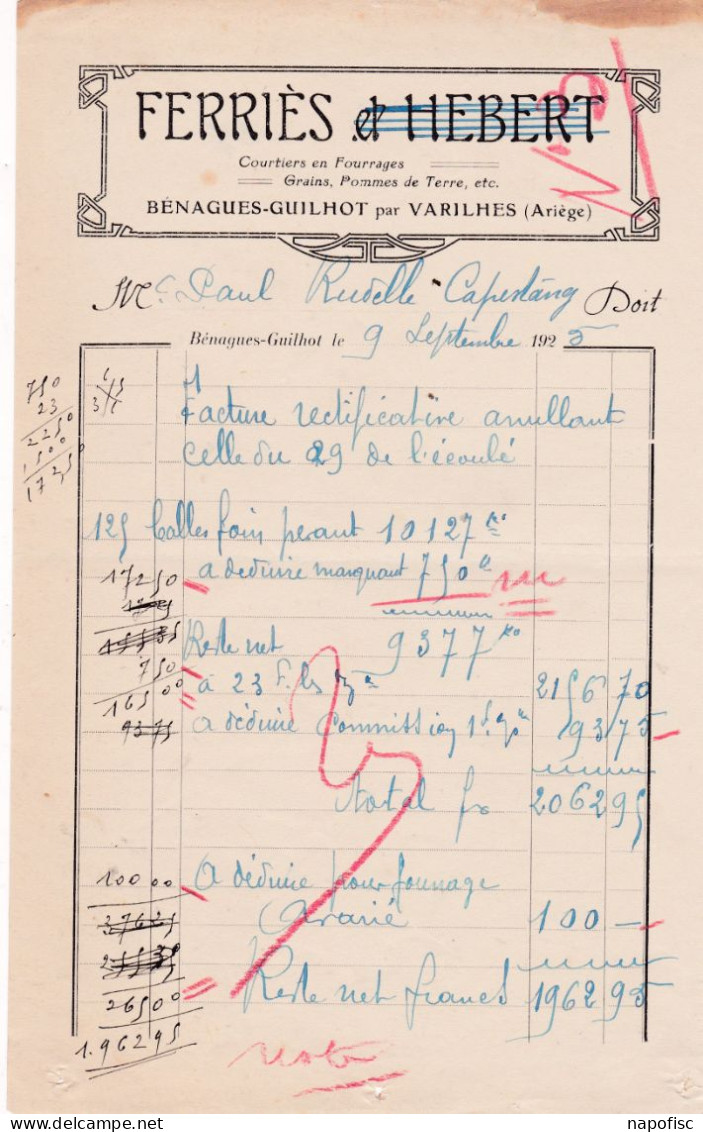 FERRIÈS et HEBERT
N° 3
Courtiers en Fourrages
Grains, Pommes de Terre, etc.
BÉNAGUES-GUILHOT par VARILHES (Ariège)
Mr Paul Rudelle Capestang Doit
Bénagues-Guilhot le 9 Septembre 1925
750
23
2250
1500
17250
Facture rectificative anullant
celle du 29 de l'écoulé
125 balles foin pesant 10127 ko
17250 a deduire manquant 750 k
Reste net 9377 ko
750
a 23 f. les % k 2156 70
16500
9375 a déduire Commission 1f. % k 93 75
Total fs 2062 95
100 00 A déduire pour fourrage
avarié 100 —
37625
26500 Reste net francs 1962 95
1.962 95
napofisc